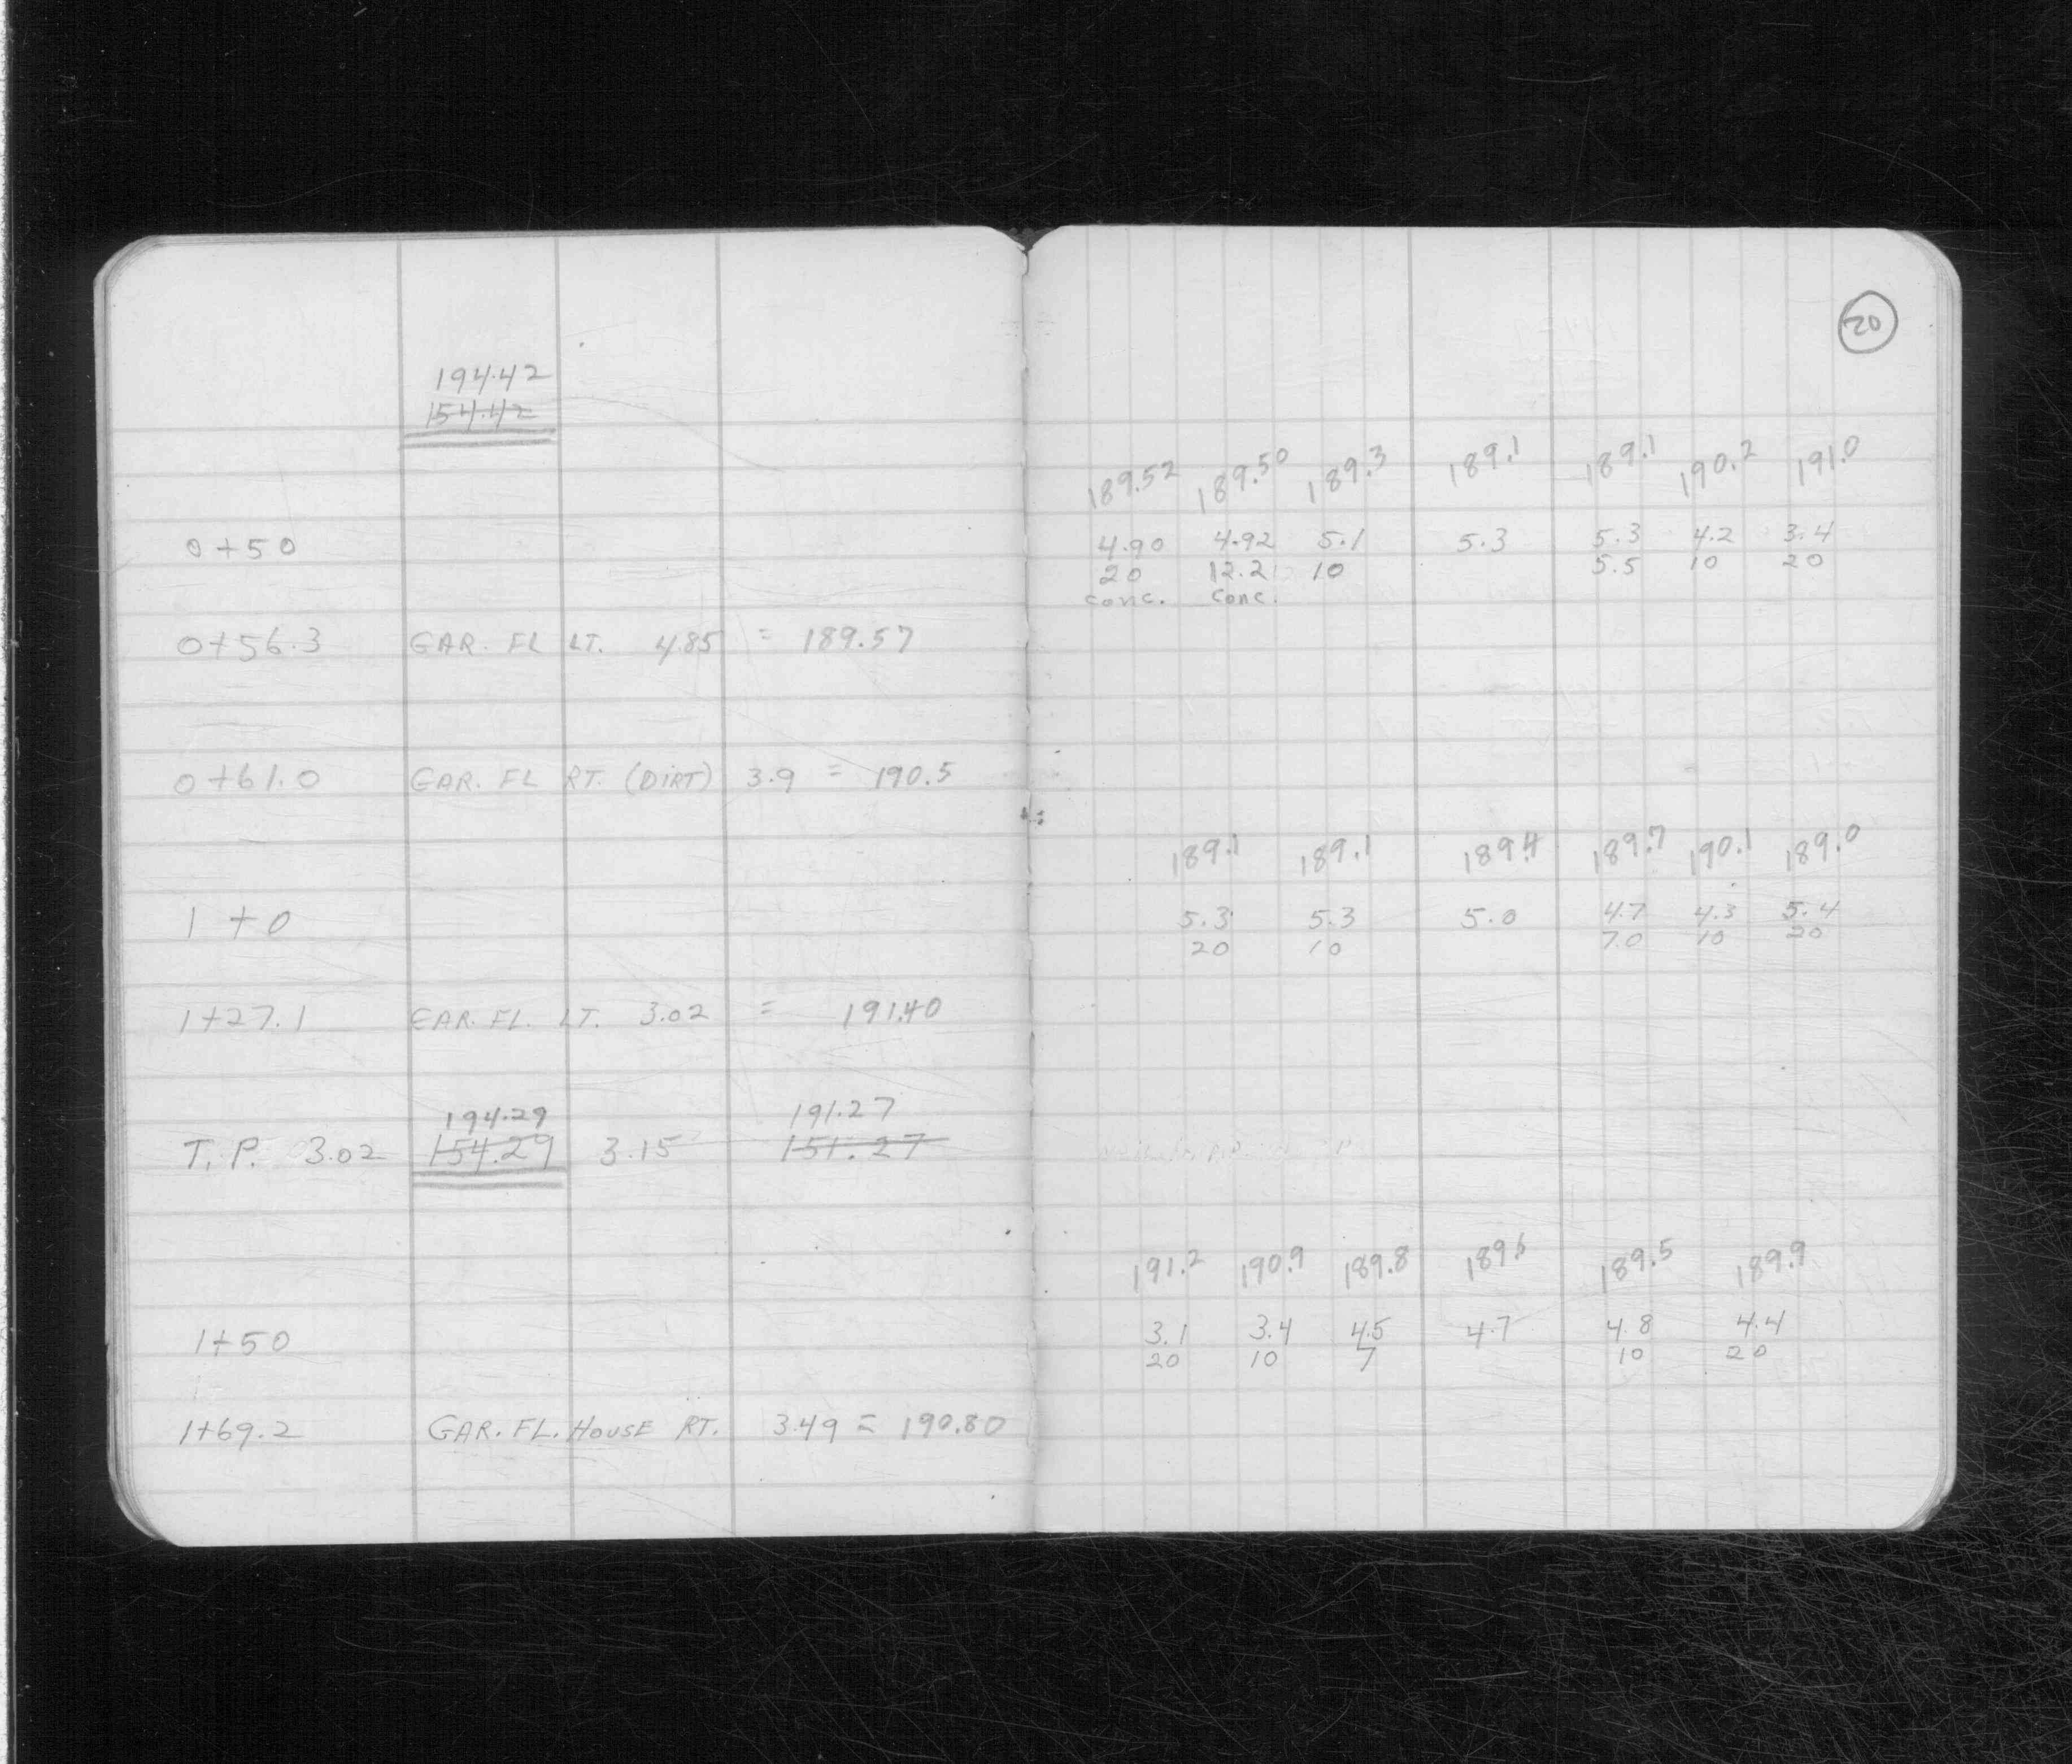 20
194.42
154.42
189.52 189.50 189.3 189.1 189.1 190.2 191.0
0+50 4.90 4.92 5.1 5.3 5.3 4.2 3.4
20 12.2 10 5.5 10 20
conc. conc.
0+56.3 GAR. FL LT. 4.85 = 189.57
0+61.0 GAR. FL RT. (DIRT) 3.9 = 190.5
189.1 189.1 189.4 189.7 190.1 189.0
1+0 5.3 5.3 5.0 4.7 4.3 5.4
20 10 7.0 10 20
1+27.1 GAR. FL. LT. 3.02 = 191.40
194.29 191.27
T.P. 3.02 154.29 3.15 151.27
191.2 190.9 189.8 189.6 189.5 189.9
1+50 3.1 3.4 4.5 4.7 4.8 4.4
20 10 7 10 20
1+69.2 GAR. FL. HOUSE RT. 3.49 = 190.80